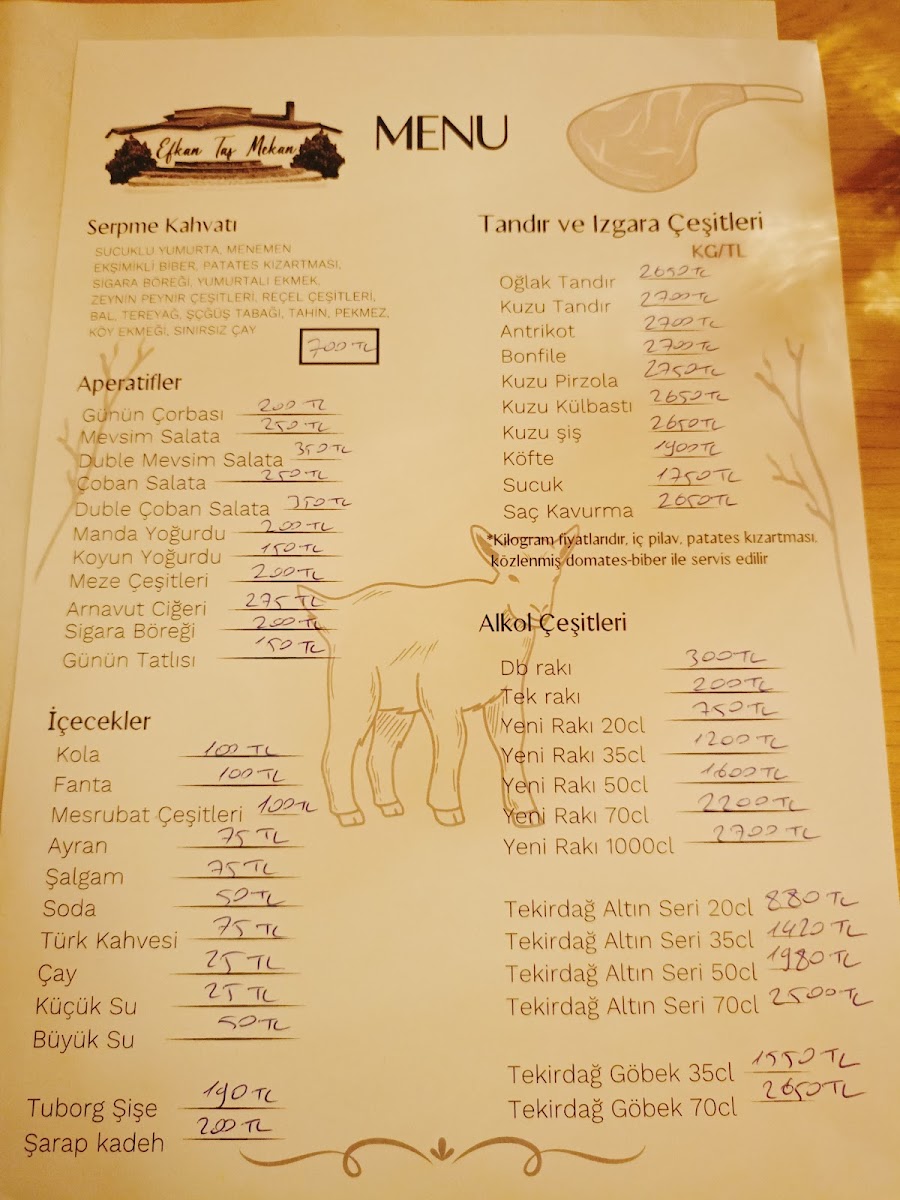 Efkan Taş Mekan
MENU
Serpme Kahvatı
SUCUKLU YUMURTA, MENEMEN
EKŞİMİKLİ BİBER, PATATES KIZARTMASI,
SİGARA BÖREĞİ, YUMURTALI EKMEK,
ZEYNİN PEYNİR ÇEŞİTLERİ, REÇEL ÇEŞİTLERİ,
BAL, TEREYAĞ, ŞÇĞÜŞ TABAĞI, TAHİN, PEKMEZ,
KÖY EKMEĞİ, SINIRSIZ ÇAY
700 TL
Aperatifler
Günün Çorbası 200 TL
Mevsim Salata 250 TL
Duble Mevsim Salata 350 TL
Çoban Salata 250 TL
Duble Çoban Salata 350 TL
Manda Yoğurdu 200 TL
Koyun Yoğurdu 150 TL
Meze Çeşitleri 200 TL
Arnavut Ciğeri 275 TL
Sigara Böreği 200 TL
Günün Tatlısı 150 TL
İçecekler
Kola 100 TL
Fanta 100 TL
Mesrubat Çeşitleri 100 TL
Ayran 75 TL
Şalgam 75 TL
Soda 50 TL
Türk Kahvesi 75 TL
Çay 25 TL
Küçük Su 25 TL
Büyük Su 50 TL
Tuborg Şişe 190 TL
Şarap kadeh 200 TL
Tandır ve Izgara Çeşitleri
KG/TL
Oğlak Tandır 2650 TL
Kuzu Tandır 2700 TL
Antrikot 2700 TL
Bonfile 2700 TL
Kuzu Pirzola 2750 TL
Kuzu Külbastı 2650 TL
Kuzu şiş 2650 TL
Köfte 1900 TL
Sucuk 1750 TL
Saç Kavurma 2650 TL
*Kilogram fiyatlarıdır, iç pilav, patates kızartması,
közlenmiş domates-biber ile servis edilir
Alkol Çeşitleri
Db rakı 300 TL
Tek rakı 200 TL
Yeni Rakı 20cl 750 TL
Yeni Rakı 35cl 1200 TL
Yeni Rakı 50cl 1600 TL
Yeni Rakı 70cl 2200 TL
Yeni Rakı 1000cl 2700 TL
Tekirdağ Altın Seri 20cl 880 TL
Tekirdağ Altın Seri 35cl 1420 TL
Tekirdağ Altın Seri 50cl 1980 TL
Tekirdağ Altın Seri 70cl 2500 TL
Tekirdağ Göbek 35cl 1550 TL
Tekirdağ Göbek 70cl 2650 TL